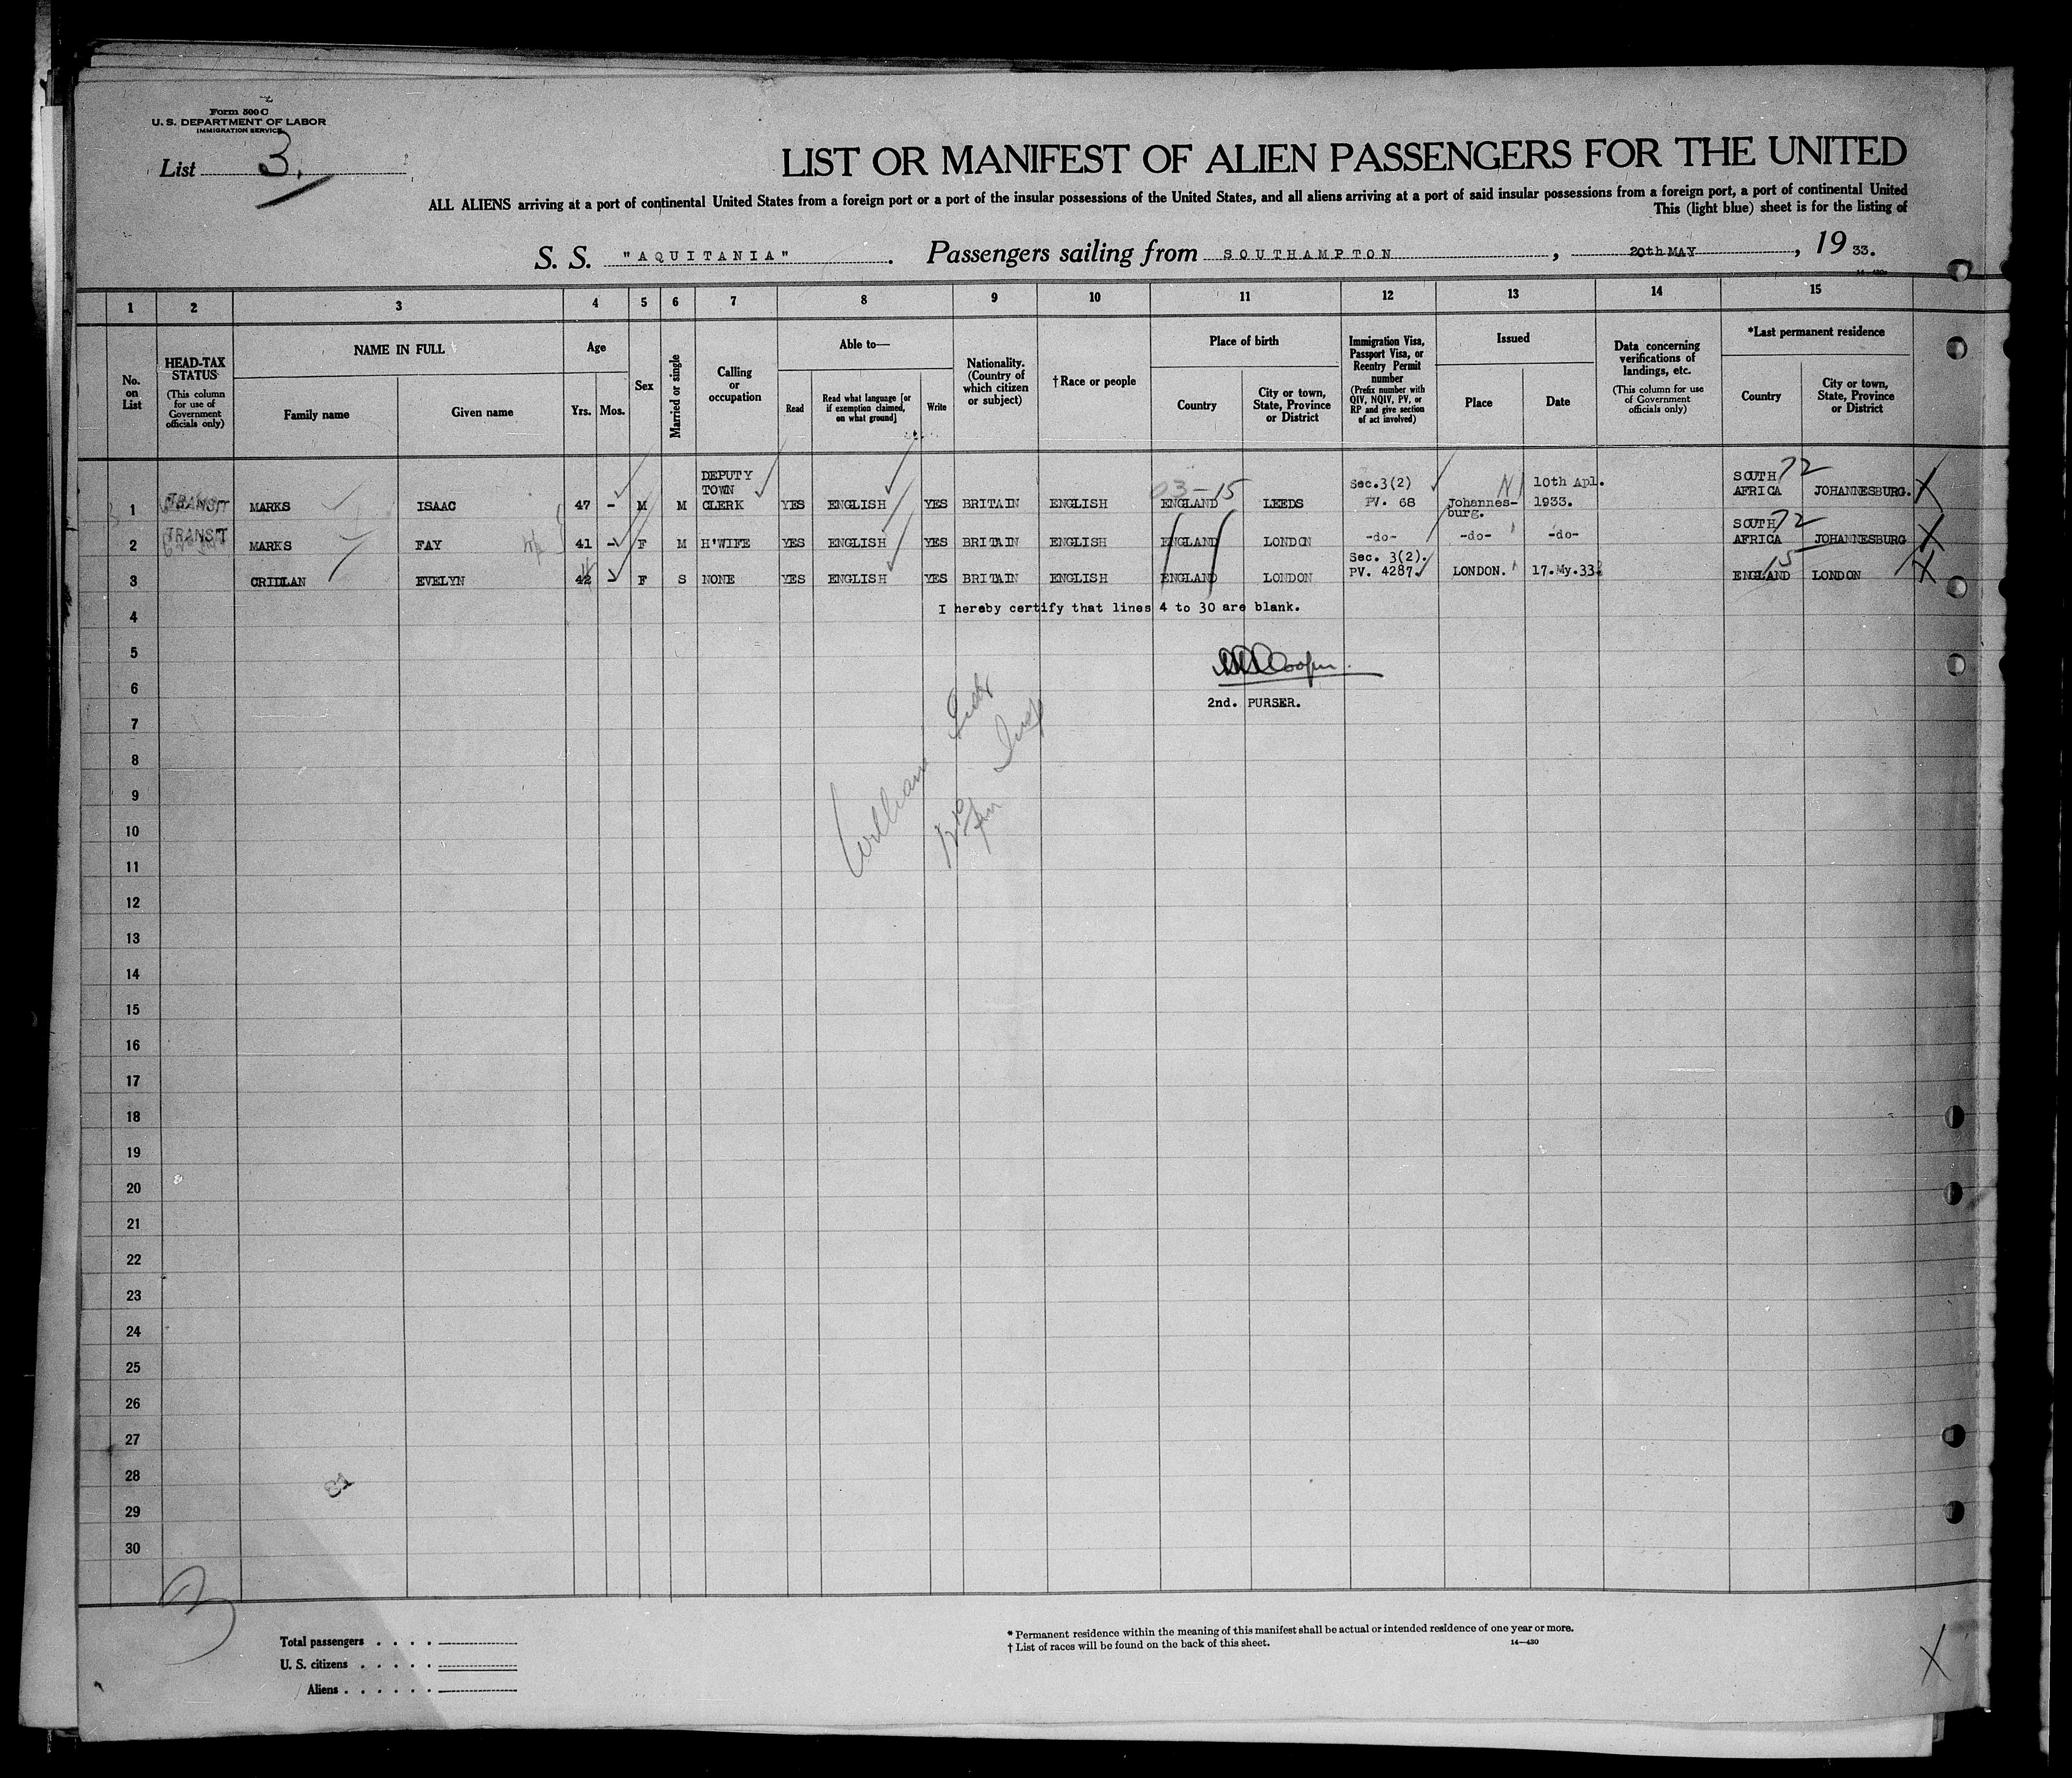 Form 500 C
U. S. DEPARTMENT OF LABOR
IMMIGRATION SERVICE
List 3.
LIST OR MANIFEST OF ALIEN PASSENGERS FOR THE UNITED
ALL ALIENS arriving at a port of continental United States from a foreign port or a port of the insular possessions of the United States, and all aliens arriving at a port of said insular possessions from a foreign port, a port of continental United
This (light blue) sheet is for the listing of
S. S. "AQUITANIA". Passengers sailing from SOUTHAMPTON, 20th MAY, 19 33.
1 2 3 4 5 6 7 8 9 10 11 12 13 14 15
No. on List
HEAD-TAX STATUS
(This column for use of Government officials only)
NAME IN FULL
Family name
Given name
Age
Yrs. Mos.
Sex
Married or single
Calling or occupation
Able to—
Read
Read what language [or if exemption claimed, on what ground]
Write
Nationality. (Country of which citizen or subject)
†Race or people
Place of birth
Country
City or town, State, Province or District
Immigration Visa, Passport Visa, or Reentry Permit number
(Prefix number with QIV, NQIV, PV, or RP and give section of act involved)
Issued
Place
Date
Data concerning verifications of landings, etc.
(This column for use of Government officials only)
*Last permanent residence
Country
City or town, State, Province or District
1 TRANSIT MARKS ISAAC 47 - M M DEPUTY TOWN CLERK YES ENGLISH YES BRITAIN ENGLISH 03-15 ENGLAND LEEDS Sec.3(2) PV. 68 Johannesburg. 10th Apl. 1933. SOUTH AFRICA 72 JOHANNESBURG.
2 TRANSIT MARKS FAY 41 - F M H'WIFE YES ENGLISH YES BRITAIN ENGLISH ENGLAND LONDON -do- -do- -do- SOUTH AFRICA 72 JOHANNESBURG
3 CRIDLAN EVELYN 42 F S NONE YES ENGLISH YES BRITAIN ENGLISH ENGLAND LONDON Sec. 3(2). PV. 4287. LONDON. 17.My.33. ENGLAND 15 LONDON
4 I hereby certify that lines 4 to 30 are blank.
5
Cooper
6
2nd. PURSER.
7
8
William
9
10
11
12
13
14
15
16
17
18
19
20
21
22
23
24
25
26
27
28
29
30
3
Total passengers
U. S. citizens
Aliens
* Permanent residence within the meaning of this manifest shall be actual or intended residence of one year or more.
† List of races will be found on the back of this sheet.
14—430